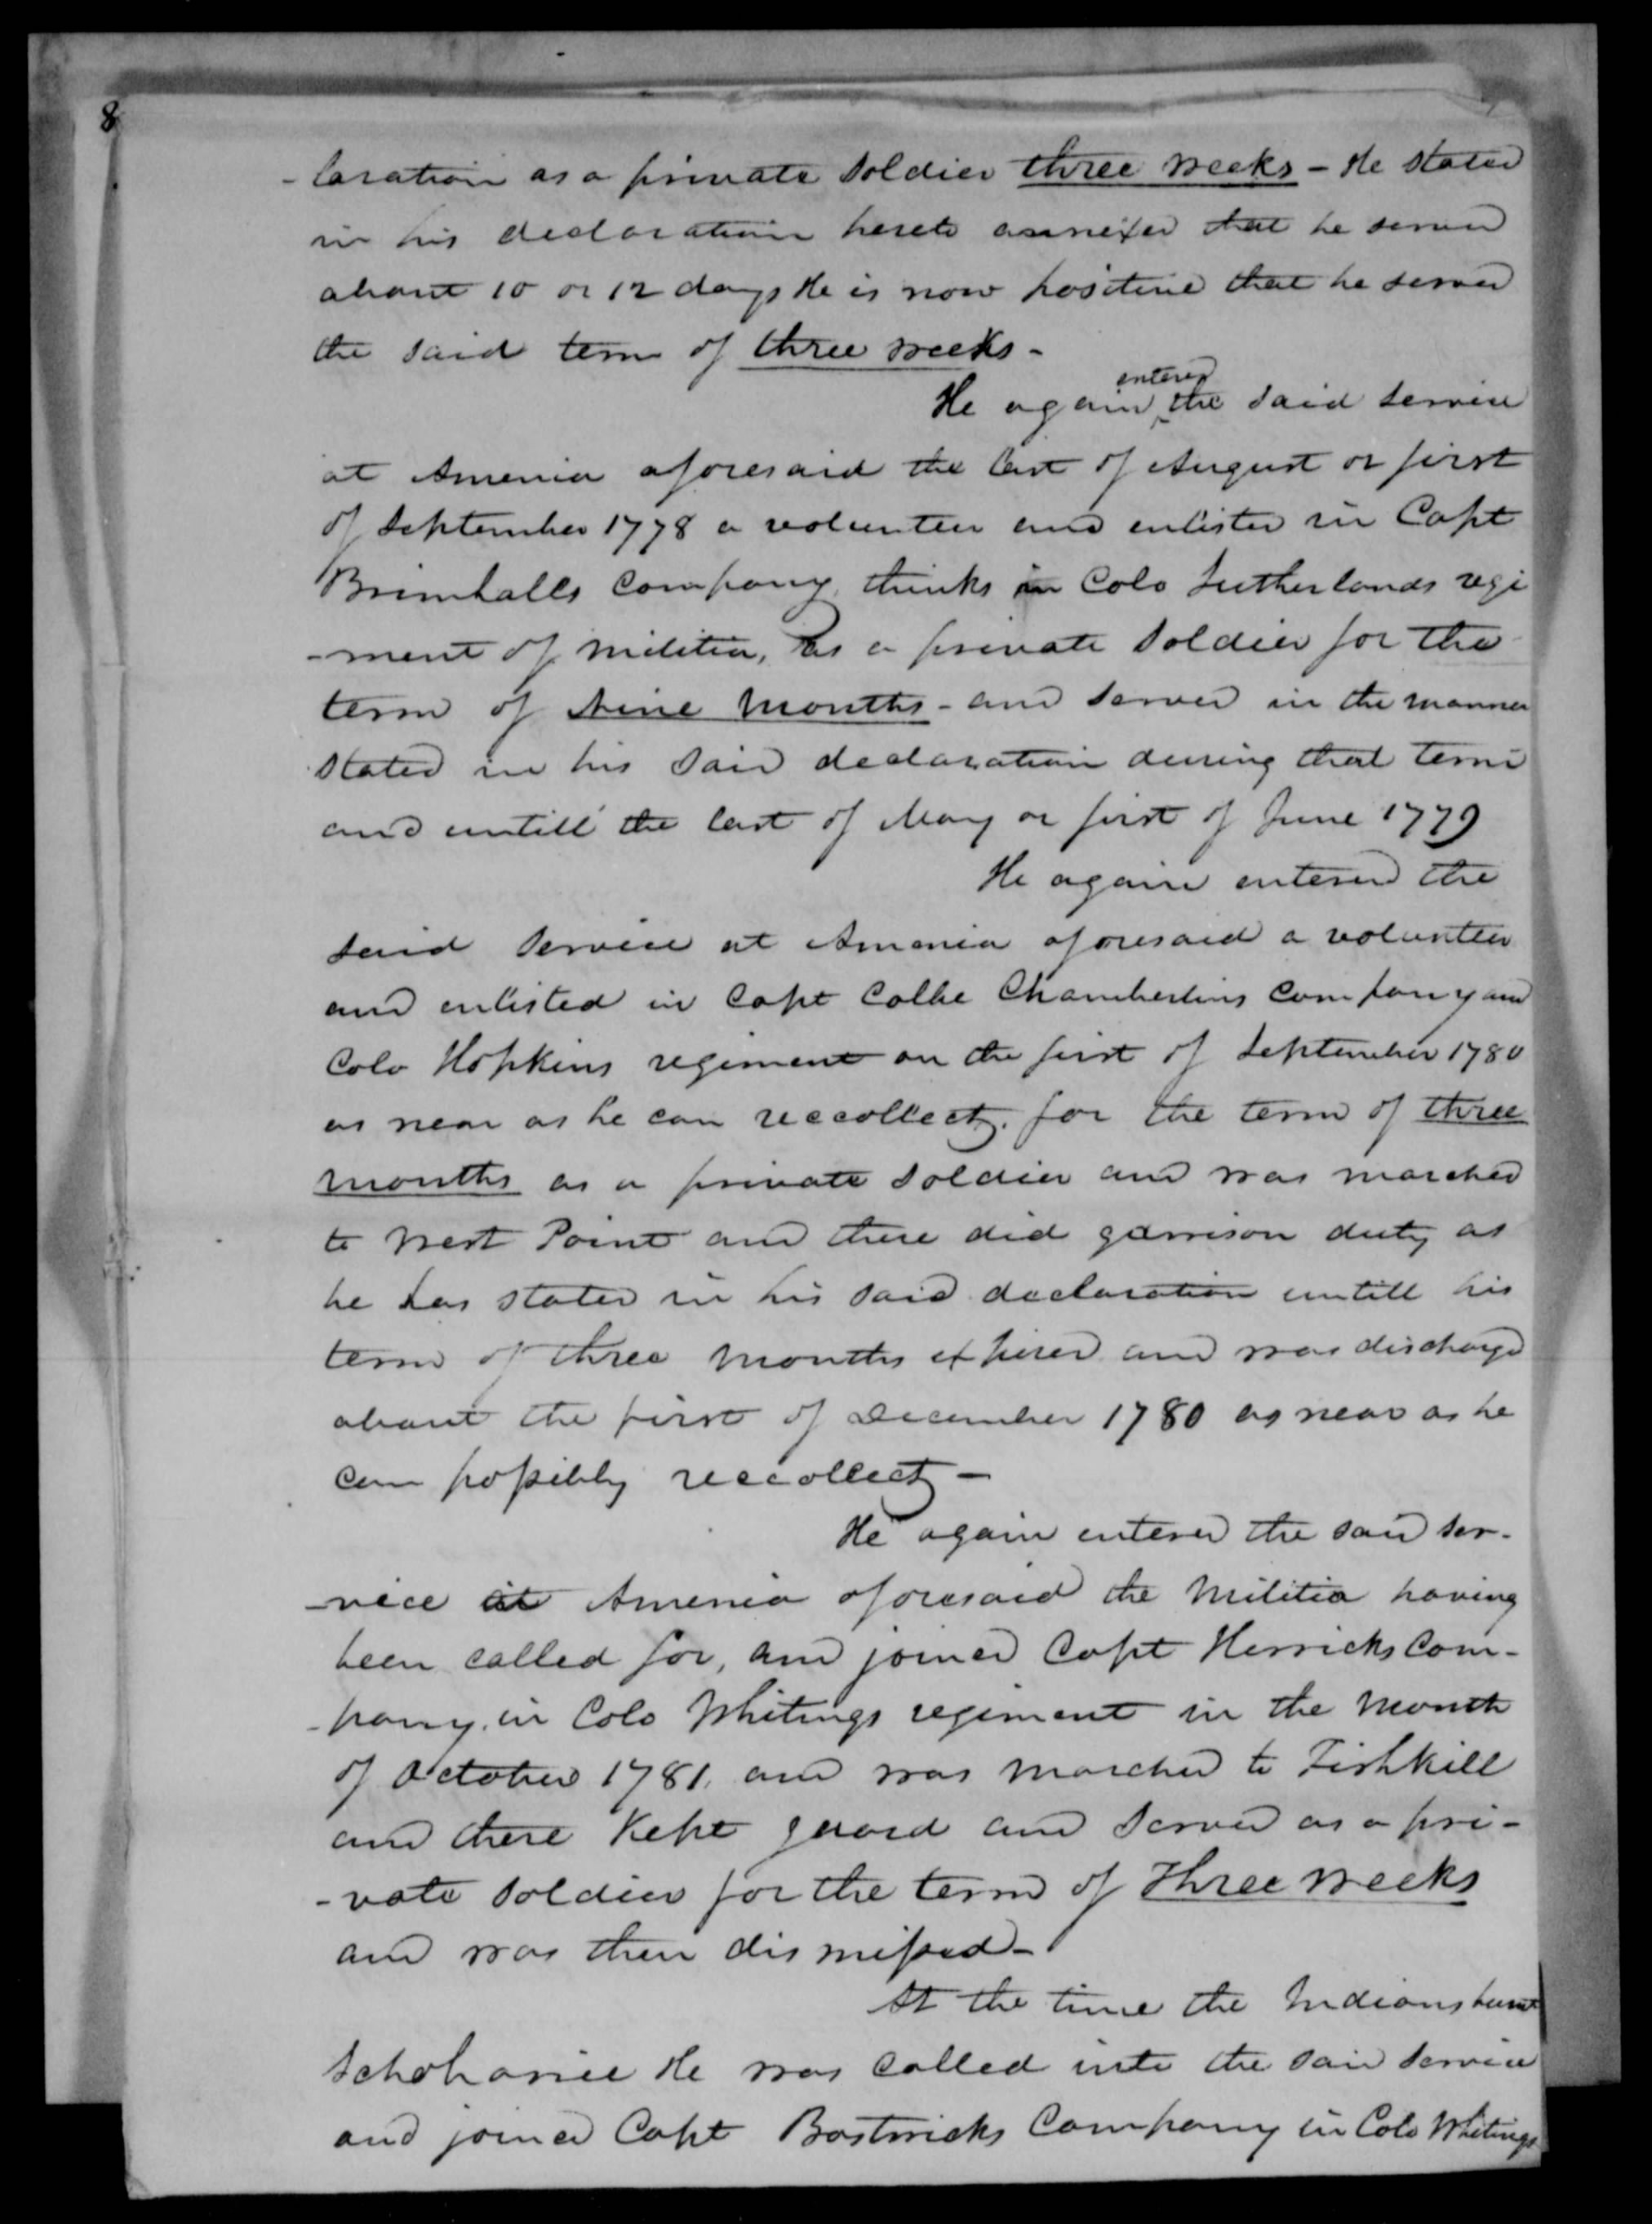 8
- laration as a private Soldier three weeks - He stated
in his declaration hereto annexed that he served
about 10 or 12 days He is now positive that he served
the said term of three weeks -
He again entered the said service
at Amenia aforesaid the last of August or first
of September 1778 a volunteer and enlisted in Capt
Brimhalls Company, thinks in Colo Sutherlands regi
- ment of militia, as a private Soldier for the
term of Nine Months - and served in the manner
stated in his said declaration during that term
and untill the last of May or first of June 1779
He again entered the
said Service at Amenia aforesaid a volunteer
and enlisted in Capt Colbe Chamberlins Company and
Colo Hopkins regiment on the first of September 1780
as near as he can reccollect, for the term of three
months as a private Soldier and was marched
to West Point and there did garrison duty as
he has stated in his said declaration untill his
term of three months expired and was discharged
about the first of December 1780 as near as he
can possibly reccollect -
He again entered the said ser-
- vice at Amenia aforesaid the Militia having
been called for, and joined Capt Herricks Com-
- pany, in Colo Whitings regiment in the Month
of October 1781, and was marched to Fishkill
and there Kept guard and served as a pri-
- vate soldier for the term of Three weeks
and was then dismissed -
At the time the Indians burnt
Schoharice He was called into the said service
and joined Capt Bostwicks Company in Colo Whitings